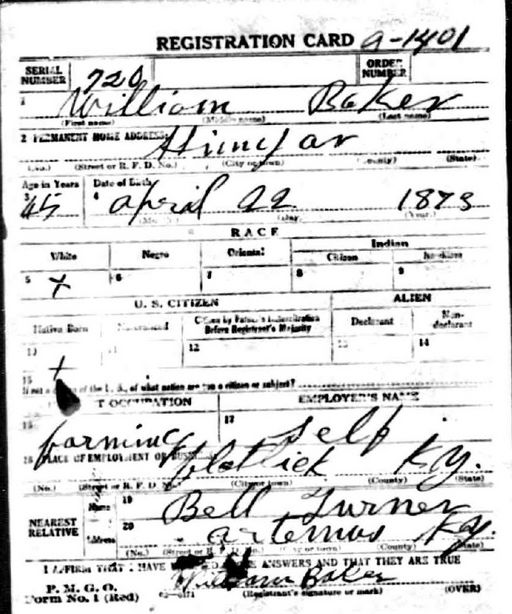 REGISTRATION CARD a-1401
SERIAL NUMBER 720 ORDER NUMBER
1 William Baker
(First name) (Middle name) (Last name)
2 PERMANENT HOME ADDRESS:
(No.) (Street or R. F. D. No.) (City or town) (County) (State)
Age in Years Date of Birth
3 45 4 april 22 1873
(Month.) (Day.) (Year.)
RACE
White Negro Oriental Indian
Citizen Noncitizen
5 x 6 7 8 9
U. S. CITIZEN ALIEN
Native Born Naturalized Citizen by Father's Naturalization Before Registrant's Majority Declarant Non-declarant
10 x 11 12 13 14
15
If not a citizen of the U. S., of what nation are you a citizen or subject?
PRESENT OCCUPATION EMPLOYER'S NAME
16 farming 17 self
18 PLACE OF EMPLOYMENT OR BUSINESS: Ky.
(No.) (Street or R. F. D. No.) (City or town) (County) (State)
NEAREST RELATIVE
Name 19 Bell Turner
Address 20 artemus Ky.
(No.) (Street or R. F. D. No.) (City or town) (County) (State)
I AFFIRM THAT I HAVE VERIFIED ABOVE ANSWERS AND THAT THEY ARE TRUE
P. M. G. O.
Form No. 1 (Red) William Baker
(Registrant's signature or mark) (OVER)